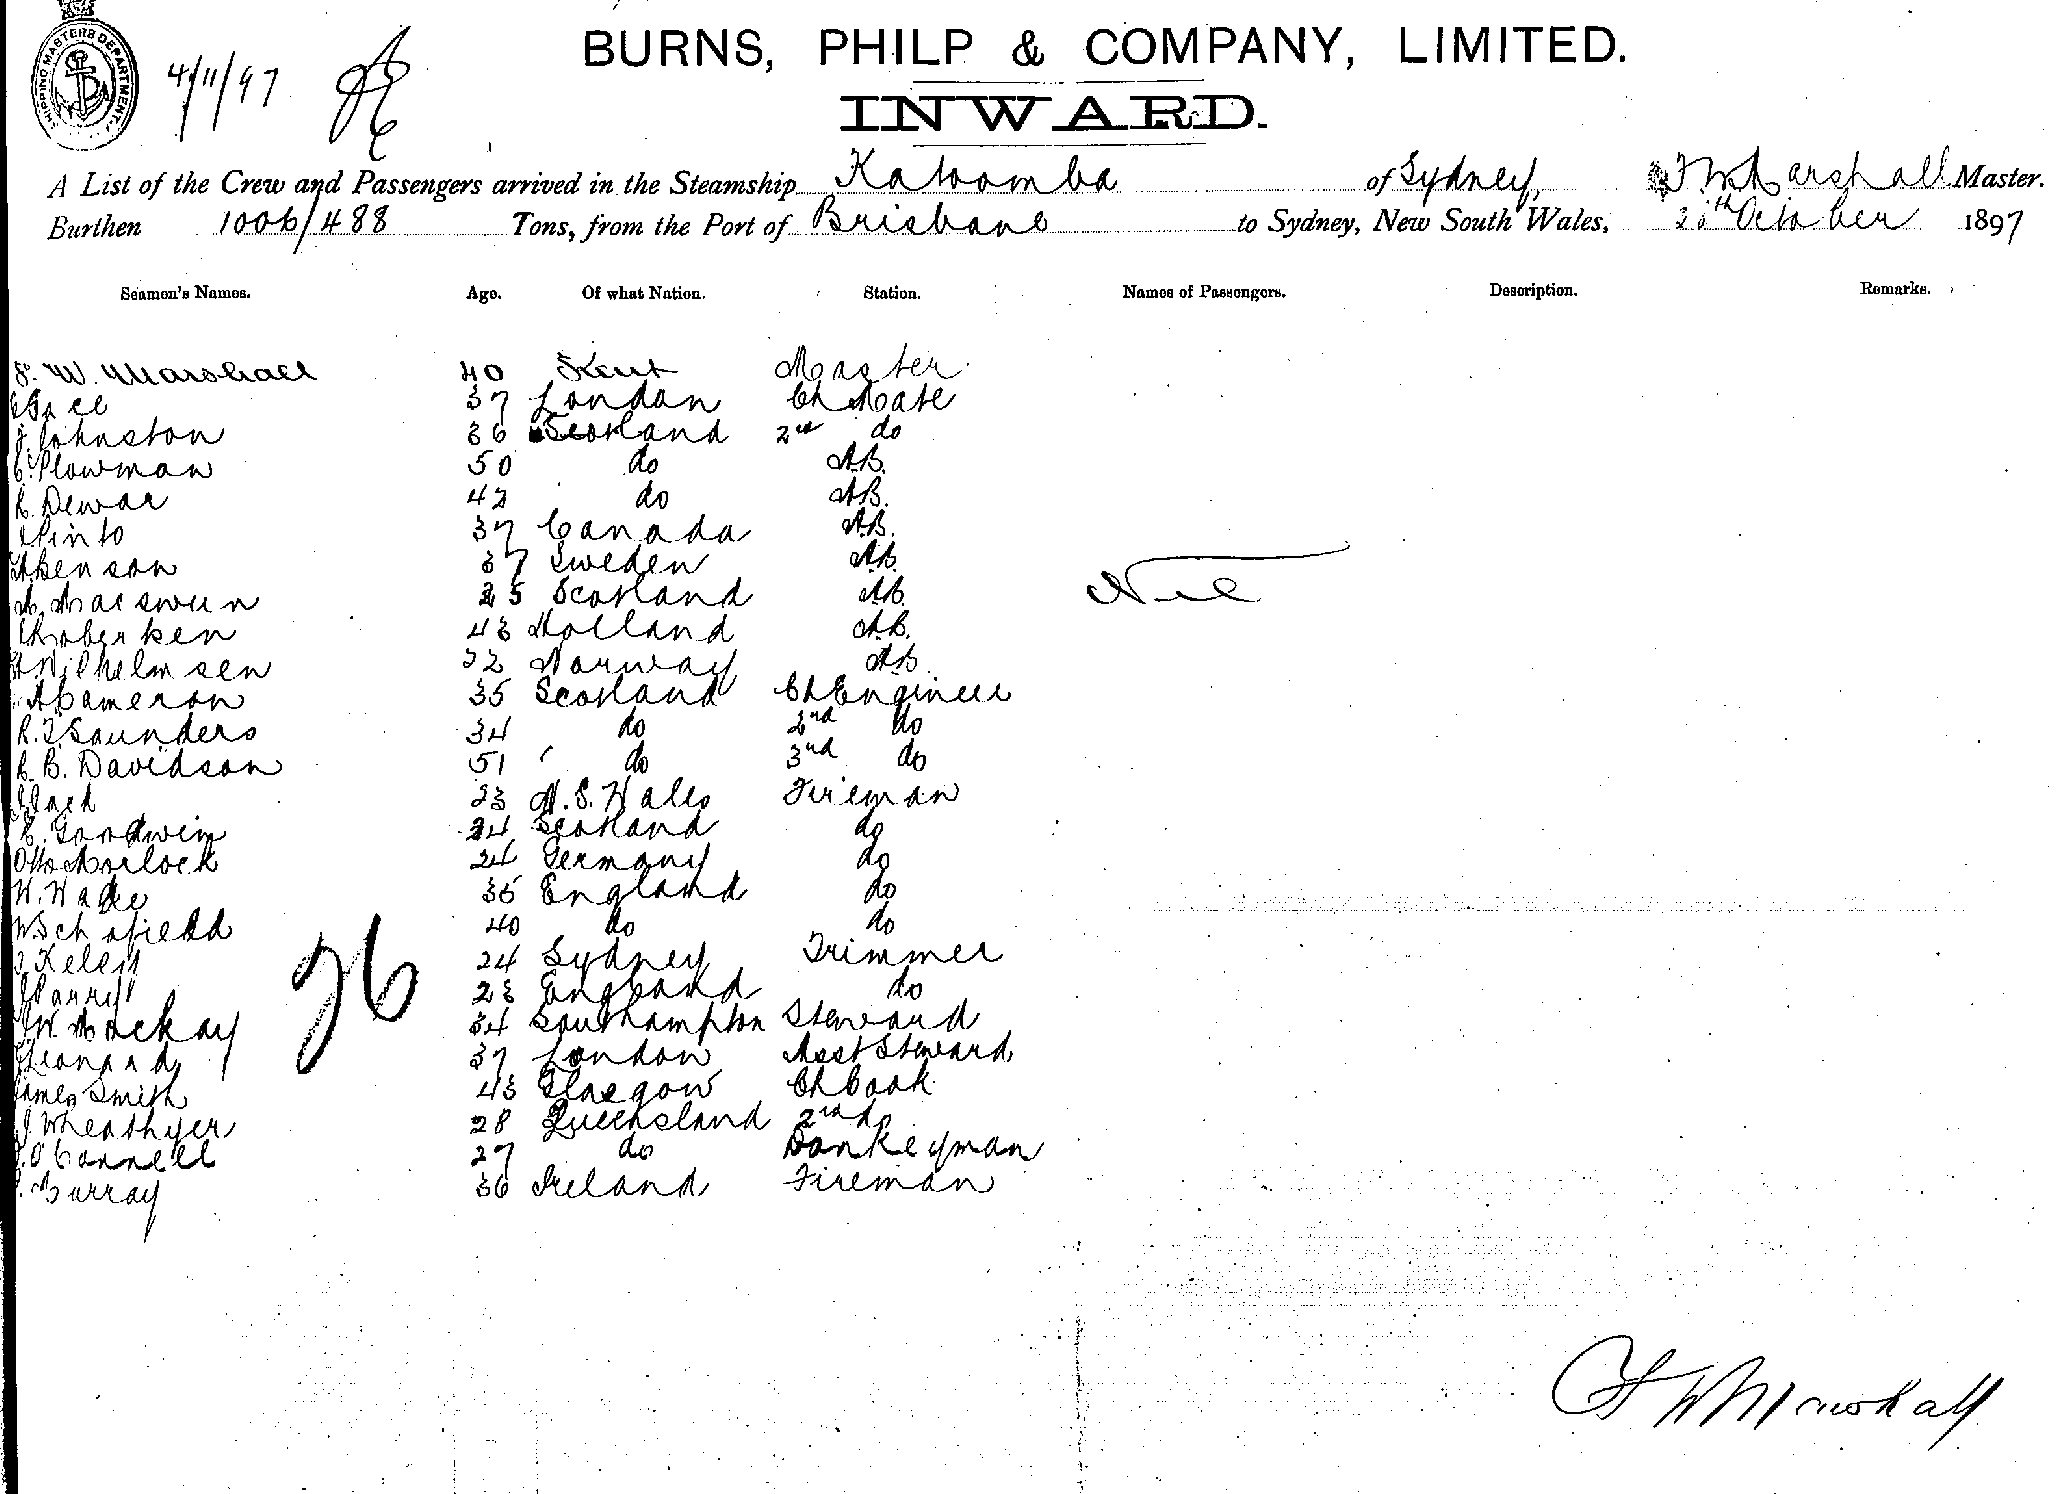 SHIPPING MASTERS DEPARTMENT
4/11/97
BURNS, PHILP & COMPANY, LIMITED.
INWARD.
A List of the Crew and Passengers arrived in the Steamship Katoomba of Sydney, F W Marshall Master.
Burthen 1006/488 Tons, from the Port of Brisbane to Sydney, New South Wales, October 1897
Seamen's Names. Age. Of what Nation. Station. Names of Passengers. Description. Remarks.
F. W. Marshall 40 Kent Master
37 London Ch Mate
J Johnston 36 Scotland 2nd do
C. Plowman 50 do AB.
R. Dewar 42 do AB.
Pinto 37 Canada AB.
37 Sweden AB.
25 Scotland AB.
Nil
43 Holland AB.
Wilhelmsen 32 Norway AB
A Cameron 35 Scotland Ch Engineer
R. T. Saunders 34 do 2nd do
R. B. Davidson 51 do 3rd do
23 N. S. Wales Fireman
E. Goodwin 24 Scotland do
Otto Morlock 24 Germany do
W. Wade 35 England do
W Schofield 40 do do
Kelly 24 Sydney Trimmer
Parry 23 England do
W. Mackay 34 Southampton Steward
Leonard 37 London Asst Steward
James Smith 43 Glasgow Ch Cook
J Wheathyer 28 Queensland 2nd do
O'Connell 27 do Donkeyman
Murray 36 Ireland Fireman
26
F W Marshall